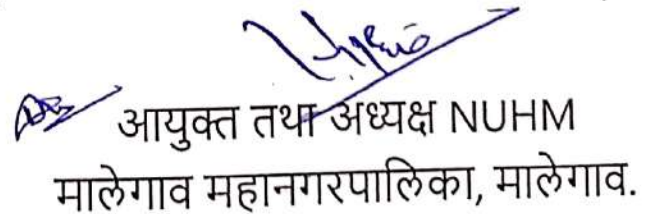 आयुक्त तथा अध्यक्ष NUHM
मालेगाव महानगरपालिका, मालेगाव.